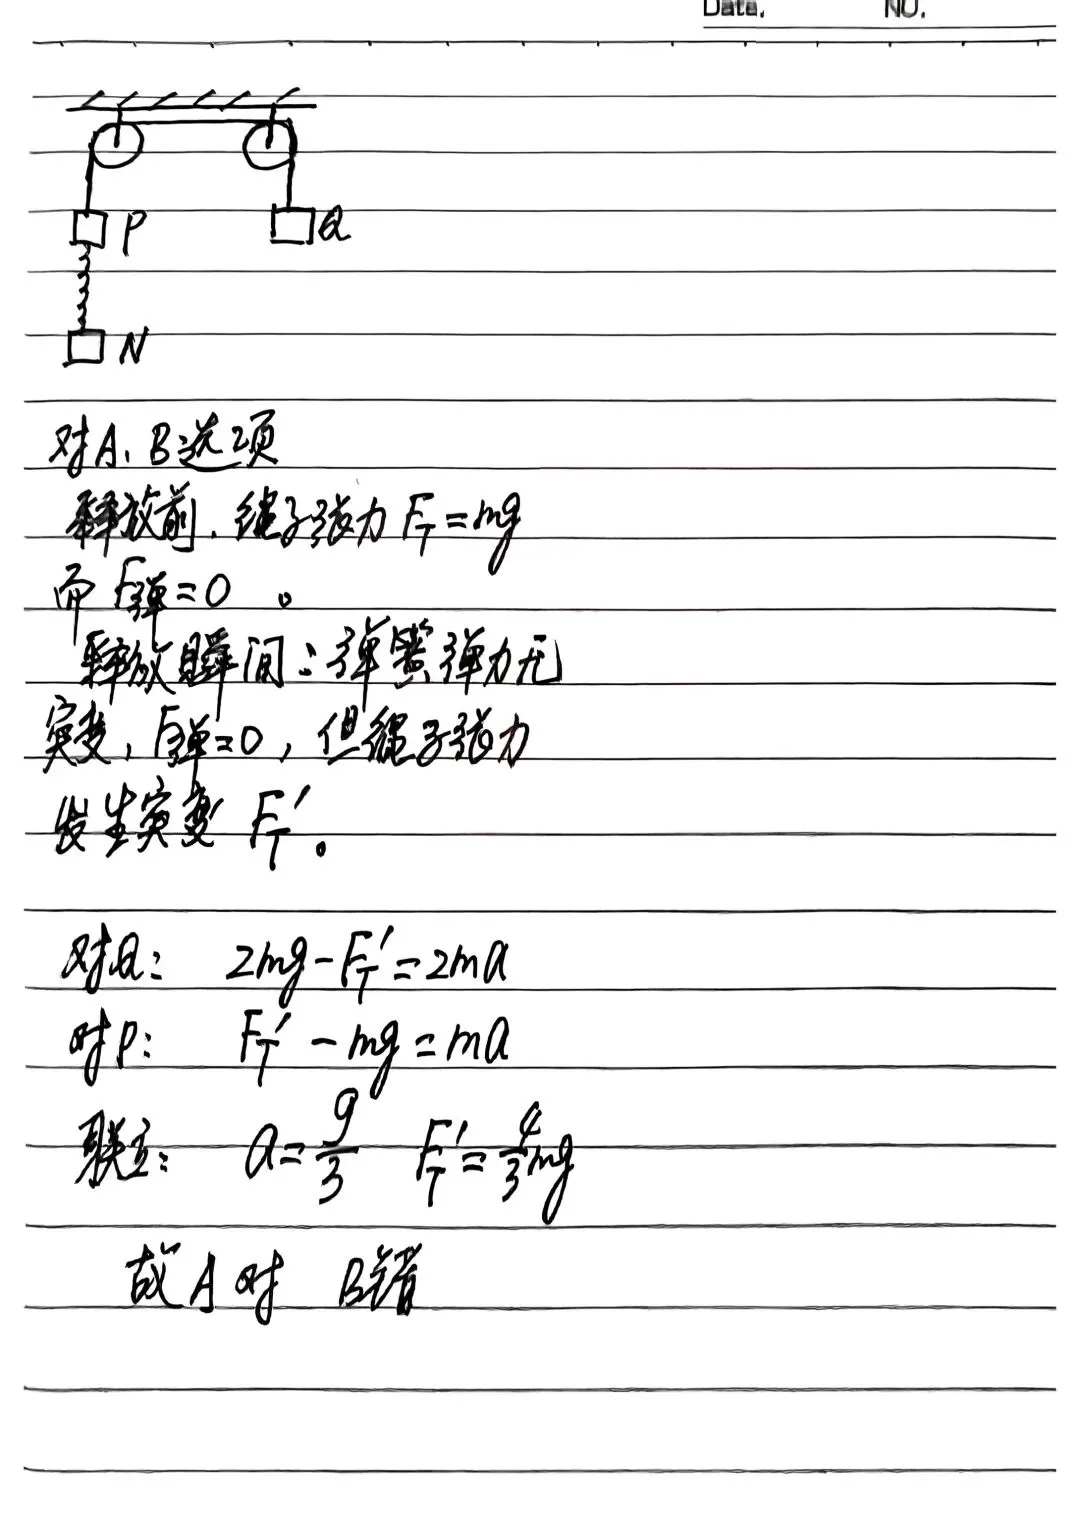 Data. NO.
P Q
N
对A、B选项
释放前，绳子张力 F_T=mg
而 F弹=0 。
释放瞬间：弹簧弹力无
突变，F弹=0，但绳子张力
发生突变 F_T'。
对Q： 2mg-F_T'=2ma
对P： F_T'-mg=ma
联立： a=g/3 F_T'=4/3mg
故A对 B错